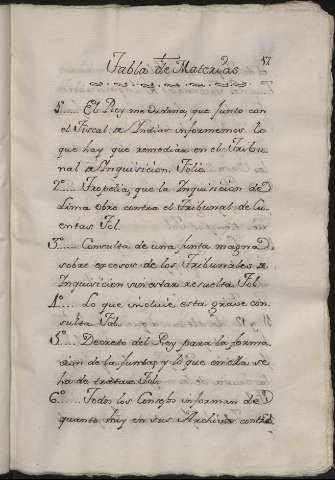 17
Tabla de Materias
1º.... El Rey me ordena, que junto con
el Fiscal de Indias informemos lo
que hay que remediar en el Tribu-
nal de Inquisicion. Folio
2º.... Tropelia, que la Inquisicion de
Lima obra contra el Tribunal de Cu-
entas Fol.
3º.... Consulta de una Junta magna
sobre excesos de los Tribunales de
Inquisicion sin estar resuelta Fol.
4º.... Lo que incluie esta grave con-
sulta Fol.
5º.... Decreto del Rey para la forma-
cion de la Junta, y lo que en ella se
ha de tratar Fol.
6º.... Todos los Consejos informan de
quanto hay en sus Archivos contra